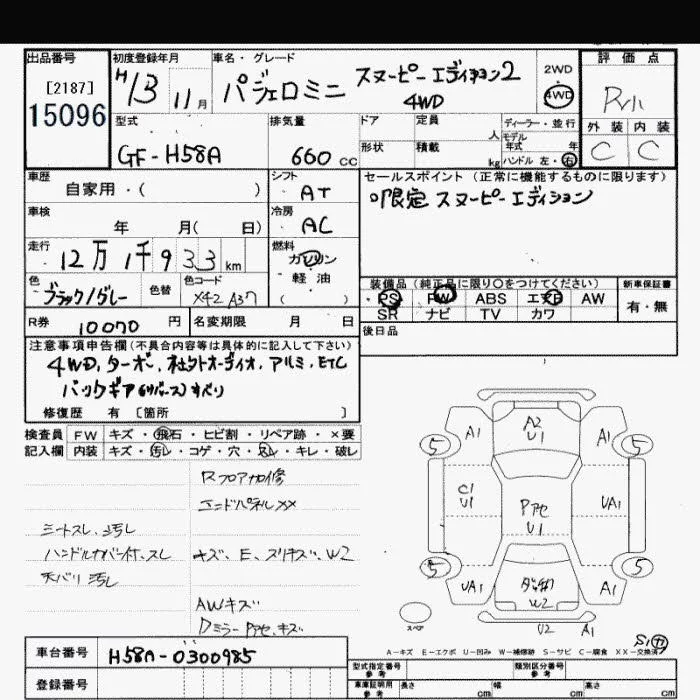 出品番号 初度登録年月 車名・グレード 評価点
[2187]
15096
H13 11月
パジェロミニ スヌーピーエディション2
4WD
2WD
4WD
型式 排気量 ドア 定員 ディーラー・並行
人 モデル
年式 年
外装 内装
GF-H58A 660cc
形状 積載 kg ハンドル 左・右
C C
車歴 シフト セールスポイント(正常に機能するものに限ります)
自家用・( ) AT
限定 スヌーピーエディション
車検 冷房
年 月( 日) AC
走行 燃料
12万1千933km
ガソリン
軽油
( )
色 色替 色コード
ブラック/グレー X42 A37
装備品(純正品に限り○をつけてください) 新車保証書
PS PW ABS エアB AW
有・無
SR ナビ TV カワ
R券 10070円 名変期限 月 日
後日品
注意事項申告欄(不具合内容等は具体的に記入して下さい)
4WD、ターボ、社外オーディオ、アルミ、ETC
バックギア(リバース)すべり
修復歴 有 [箇所 ]
検査員 FW キズ・飛石・ヒビ割・リペア跡・×要
記入欄 内装 キズ・汚レ・コゲ・穴・スレ・キレ・破レ
Rフロア加修
エンドパネルXX
シートスレ、汚レ
ハンドルカバー付、スレ
キズ、E、スリキズ、W2
天バリ汚レ
AWキズ
DミラーPアセ、キズ
5 A1 A2
U1 A1 5
C1
U1 Pアセ
U1 UA1
5 UA1 W2 A1 5
スペア U2 A1
A-キズ E-エクボ U-凹み W-補修跡 S-サビ C-腐食 XX-交換済
車台番号 H58A-0300985
登録番号
型式指定番号
参考
類別区分番号
参考
車庫証明用
参考 長さ cm 幅 cm 高さ cm